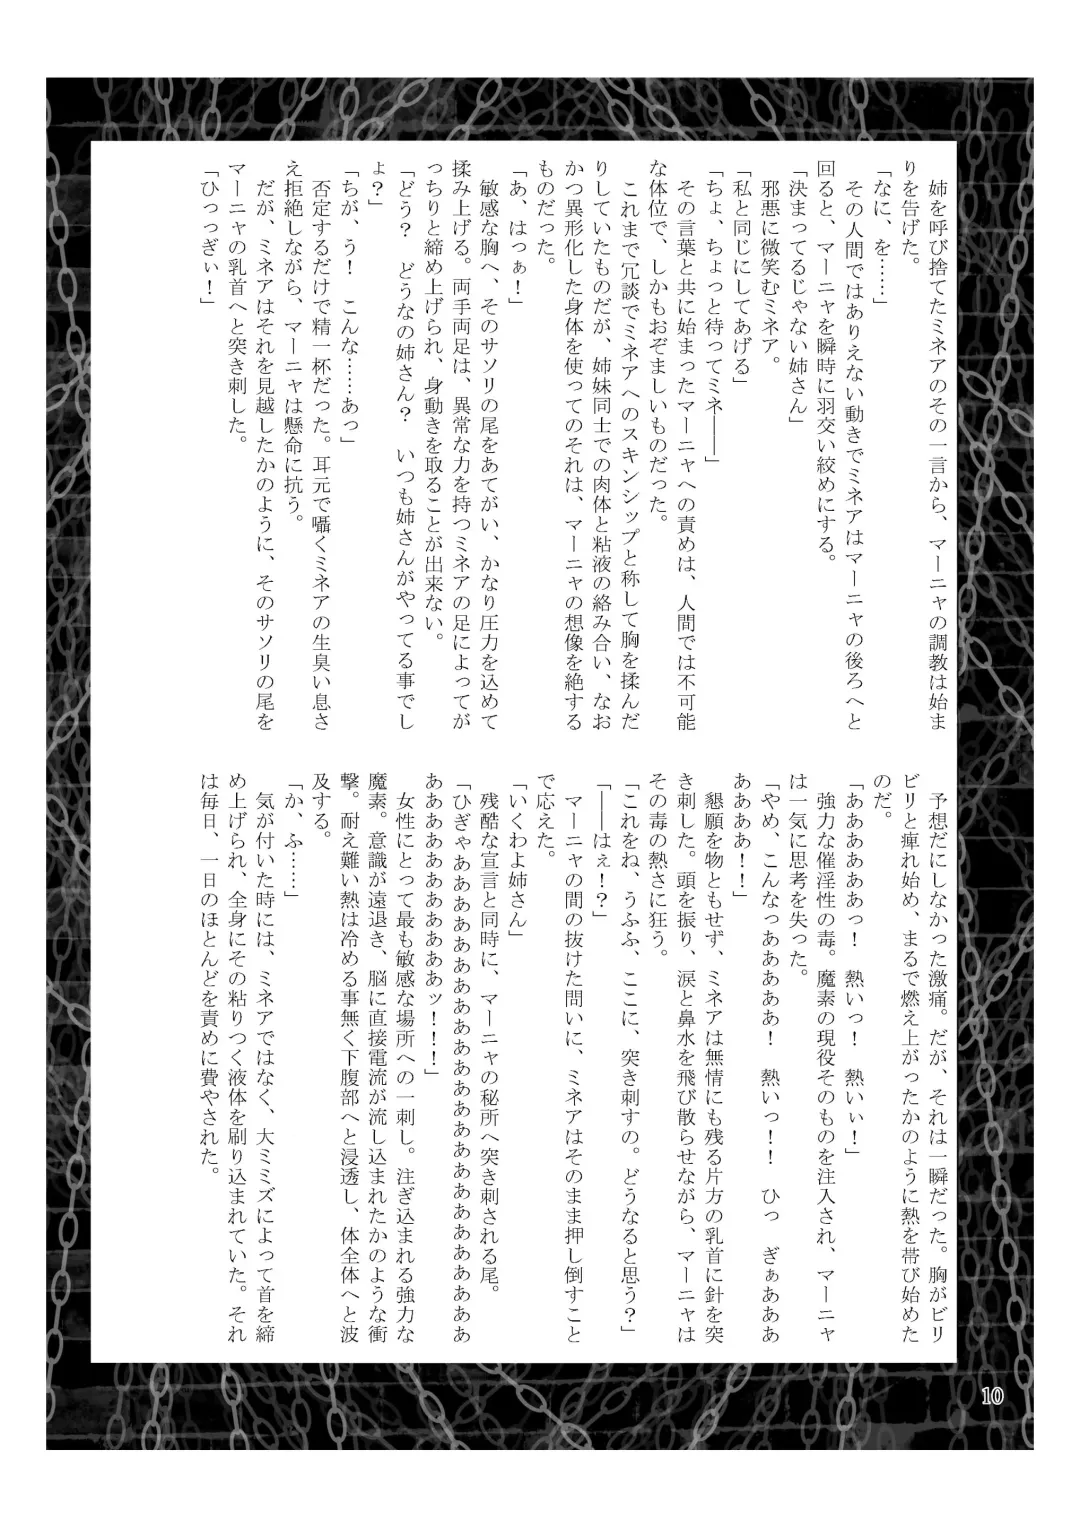 姉を呼び捨てたミネアのその一言から、マーニャの調教は始ま
りを告げた。
「なに、を……」
　その人間ではありえない動きでミネアはマーニャの後ろへと
回ると、マーニャを瞬時に羽交い絞めにする。
「決まってるじゃない姉さん」
　邪悪に微笑むミネア。
「私と同じにしてあげる」
「ちょ、ちょっと待ってミネ――」
　その言葉と共に始まったマーニャへの責めは、人間では不可能
な体位で、しかもおぞましいものだった。
　これまで冗談でミネアへのスキンシップと称して胸を揉んだ
りしていたものだが、姉妹同士での肉体と粘液の絡み合い、なお
かつ異形化した身体を使ってのそれは、マーニャの想像を絶する
ものだった。
「あ、はっぁ！」
　敏感な胸へ、そのサソリの尾をあてがい、かなり圧力を込めて
揉み上げる。両手両足は、異常な力を持つミネアの足によってが
っちりと締め上げられ、身動きを取ることが出来ない。
「どう？　どうなの姉さん？　いつも姉さんがやってる事でし
ょ？」
「ちが、う！　こんな……あっ」
　否定するだけで精一杯だった。耳元で囁くミネアの生臭い息さ
え拒絶しながら、マーニャは懸命に抗う。
　だが、ミネアはそれを見越したかのように、そのサソリの尾を
マーニャの乳首へと突き刺した。
「ひっっぎぃ！」
　予想だにしなかった激痛。だが、それは一瞬だった。胸がビリ
ビリと痺れ始め、まるで燃え上がったかのように熱を帯び始めた
のだ。
「ああああああっ！　熱いっ！　熱いぃ！」
　強力な催淫性の毒。魔素の現役そのものを注入され、マーニャ
は一気に思考を失った。
「やめ、こんなっあああああ！　熱いっ！！　ひっ　ぎぁあああ
ああああ！！」
　懇願を物ともせず、ミネアは無情にも残る片方の乳首に針を突
き刺した。頭を振り、涙と鼻水を飛び散らせながら、マーニャは
その毒の熱さに狂う。
「これをね、うふふ、ここに、突き刺すの。どうなると思う？」
「――はぇ！？」
　マーニャの間の抜けた問いに、ミネアはそのまま押し倒すこと
で応えた。
「いくわよ姉さん」
　残酷な宣言と同時に、マーニャの秘所へ突き刺される尾。
「ひぎゃああああああああああああああああああああああああ
あああああああああああッ！！！」
　女性にとって最も敏感な場所への一刺し。注ぎ込まれる強力な
魔素。意識が遠退き、脳に直接電流が流し込まれたかのような衝
撃。耐え難い熱は冷める事無く下腹部へと浸透し、体全体へと波
及する。
「か、ふ……」
　気が付いた時には、ミネアではなく、大ミミズによって首を締
め上げられ、全身にその粘りつく液体を刷り込まれていた。それ
は毎日、一日のほとんどを責めに費やされた。
10